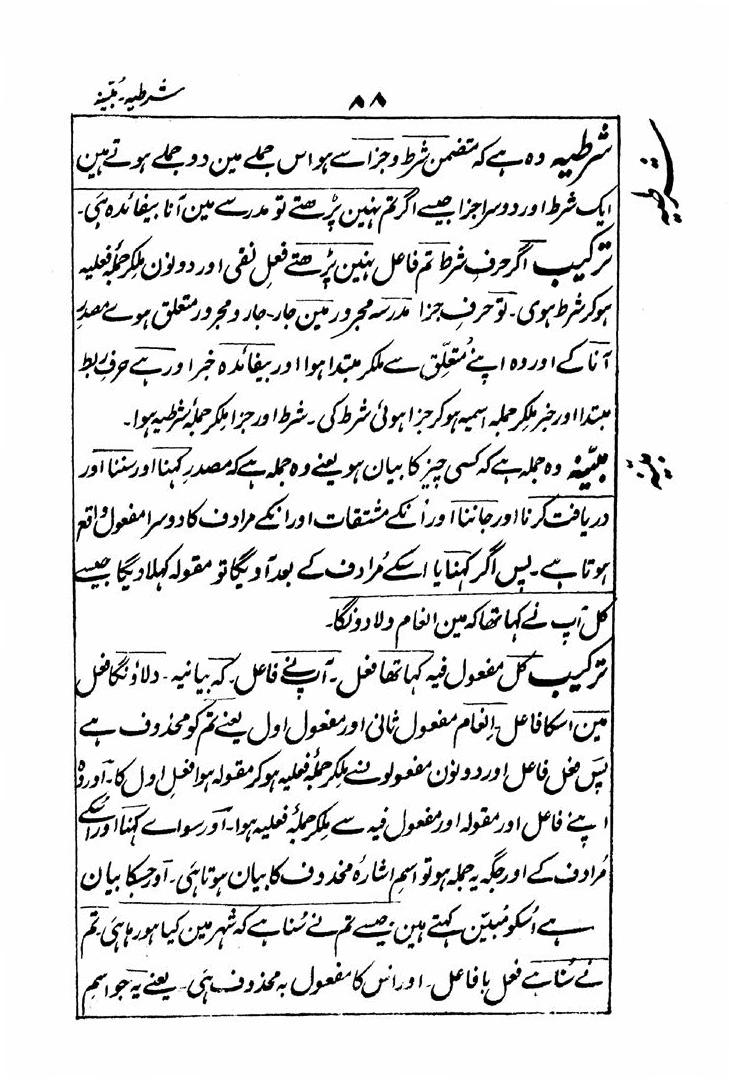 ۸۸
شرطیہ۔ مُبیّنہ
شرطیہ وہ ہے کہ متضمن شرط و جزا سے ہو اس جملے مین دو جملے ہوتے ہین
ایک شرط اور دوسرا جزا جیسے اگر تم نہین پڑھتے تو مدرسے مین آنا بیفائدہ ہی۔
ترکیب اگر حرفِ شرط تم فاعل نہین پڑھتے فعلِ نفی اور دونون ملکر جملۂ فعلیہ
ہو کر شرط ہوی۔ تو حرفِ جزا مدرسہ مجرور مین جار۔ جار و مجرور متعلق ہوے مصدر
آنا کے اور وہ اپنے مُتعلِّق سے ملکر مبتدا ہوا اور بیفائدہ خبر اور ہے حرفِ ربط
مبتدا اور خبر ملکر جملہ اسمیہ ہو کر جزا ہوئی شرط کی۔ شرط اور جزا ملکر جملۂ شرطیہ ہوا۔
مبیّنہ وہ جملہ ہے کہ کسی چیز کا بیان ہو یعنے وہ جملہ ہے کہ مصدر کہنا اور سننا اور
دریافت کرنا اور جاننا اور اُنکے مشتقات اور انکے مرادف کا دوسرا مفعول واقع
ہوتا ہے۔ پس اگر کہنا یا اسکے مُرادف کے بعد آویگا تو مقولہ کہلاویگا جیسے
کل آپ نے کہا تھا کہ مین انعام دلادونگا۔
ترکیب کل مفعول فیہ کہا تھا فعل۔ آپ نے فاعل۔ کہ بیانیہ۔ دلاؤنگا فعل
مین اسکا فاعل۔ اِنعام مفعول ثانی اور مفعول اول یعنے تم کو محذوف ہے
پس فعل فاعل اور دونون مفعولونسے ملکر جملۂ فعلیہ ہو کر مقولہ ہوا فعلِ اول کا۔ اور وہ
اپنے فاعل اور مقولہ اور مفعول فیہ سے ملکر جملۂ فعلیہ ہوا۔ اور سواے کہنا اور اُسکے
مُرادف کے اور جگہ یہ جملہ ہو تو اسمِ اشارۂ محذوف کا بیان ہوتا ہی۔ اور جسکا بیان
ہے اُسکو مُبیَّن کہتے ہین جیسے تم نے سُنا ہے کہ شہر مین کیا ہو رہا ہی۔ تم
نے سُنا ہے فعل با فاعل۔ اور اس کا مفعول بہ محذوف ہی۔ یعنے یہ جو اسمِ
شرطیہ
مبینہ